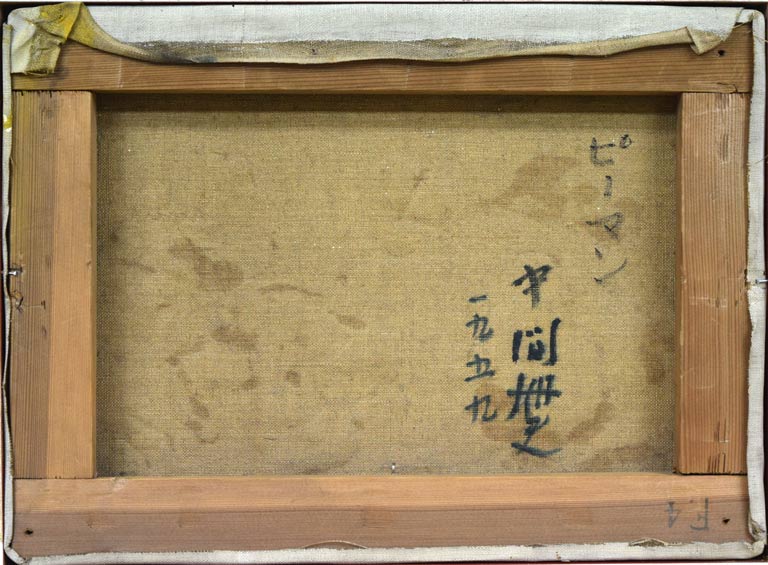 ピーマン
中間冊夫
一九五九
F4